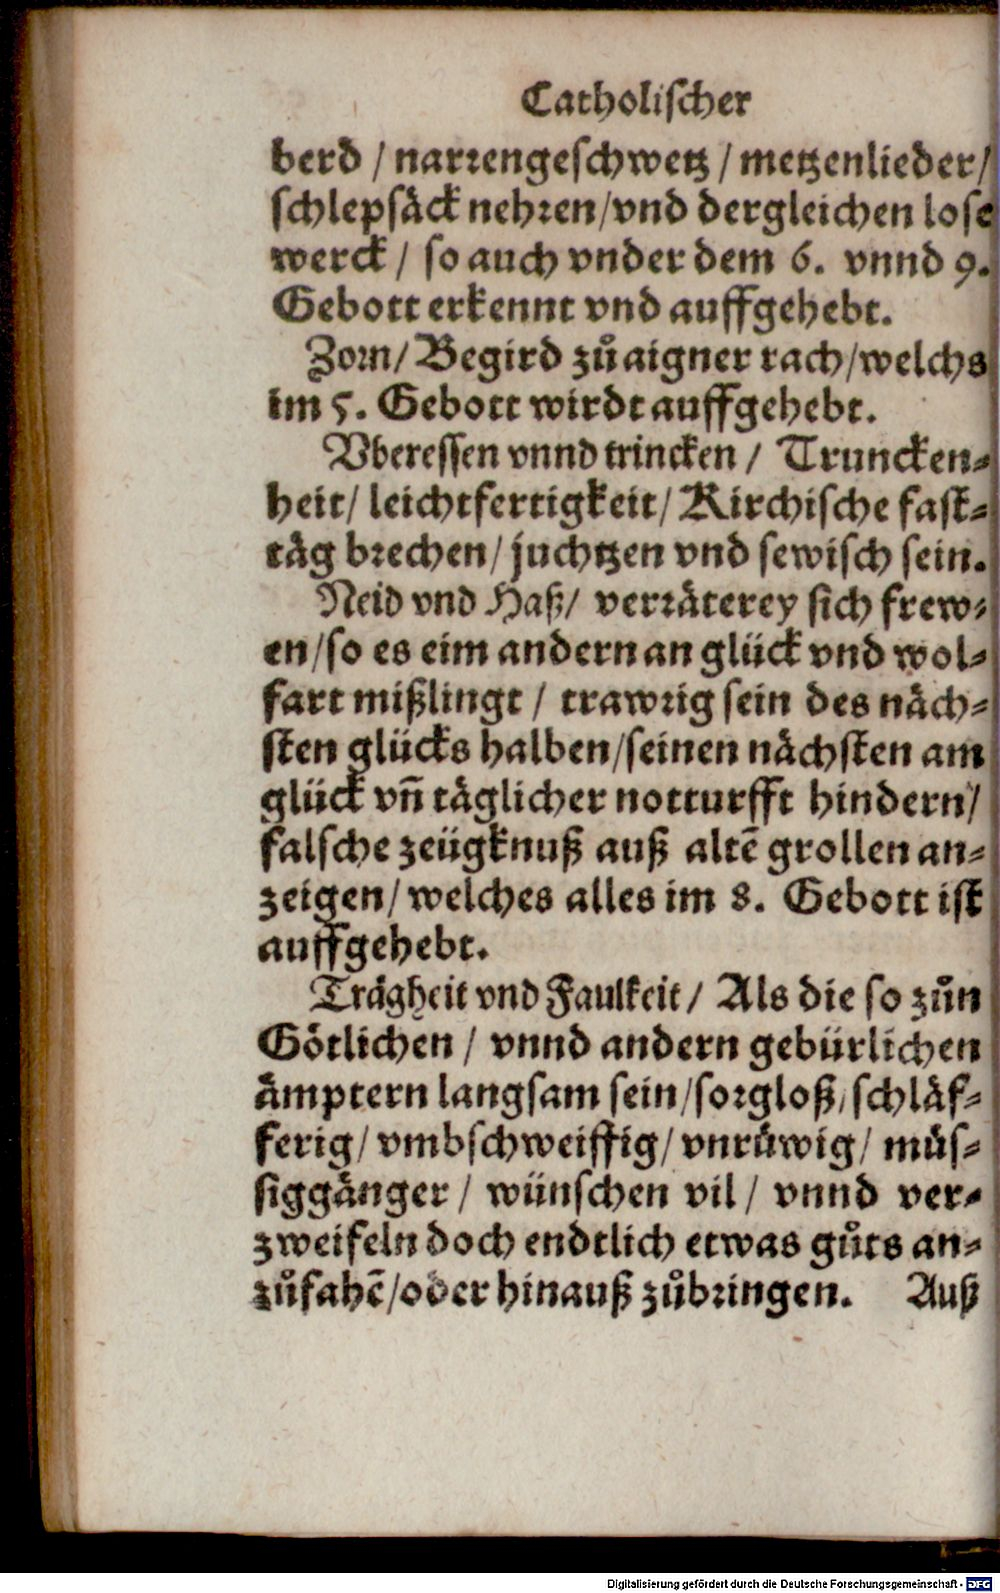 Catholischer
berd / narrengeschwetz / metzenlieder /
schlepsäck nehren / vnd dergleichen lose
werck / so auch vnder dem 6. vnnd 9.
Gebott erkennt vnd auffgehebt.
Zorn / Begird zůaigner rach / welchs
im 5. Gebott wirdt auffgehebt.
Vberessen vnnd trincken / Truncken⸗
heit / leichtfertigkeit / Kirchische fast⸗
täg brechen / juchtzen vnd sewisch sein.
Neid vnd Haß / verräterey sich frew⸗
en / so es eim andern an glück vnd wol⸗
fart mißlingt / trawrig sein des näch⸗
sten glücks halben / seinen nächsten am
glück vn̄ täglicher notturfft hindern /
falsche zeügknuß auß altē grollen an⸗
zeigen / welches alles im 8. Gebott ist
auffgehebt.
Trägheit vnd Faulkeit / Als die so zůn
Götlichen / vnnd andern gebürlichen
ämptern langsam sein / sorgloß / schläf⸗
ferig / vmbschweiffig / vnrüwig / müs⸗
siggänger / wünschen vil / vnnd ver⸗
zweifeln doch endtlich etwas gůts an⸗
zůfahē / oder hinauß zůbringen. Auß
Digitalisierung gefördert durch die Deutsche Forschungsgemeinschaft - DFG